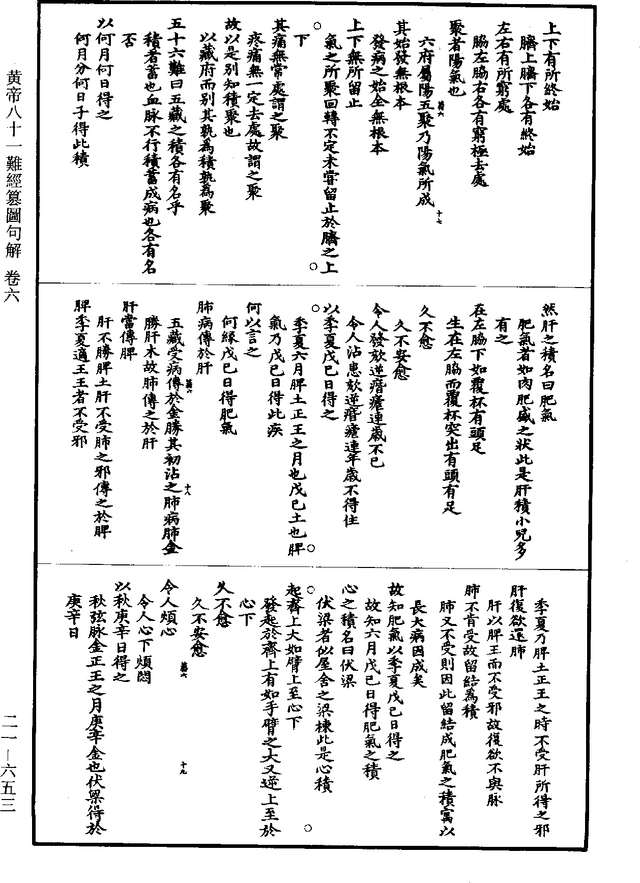 上下有所終始
臍上臍下各有終始
左右有所窮處
脇左脇右各有窮極去處
聚者陽氣也
六府屬陽五聚乃陽氣所成
第六
十七
其始發無根本
發病之始全無根本
上下無所留止
氣之所聚回轉不定未嘗留止於臍之上
下
其痛無常處謂之聚
疼痛無一定去處故謂之聚
故以是別知積聚也
以藏府而別其孰為積孰為聚
五十六難曰五藏之積各有名乎
積者蓄也血脉不行積蓄成病也各有名
否
以何月何日得之
何月分何日子得此積
然肝之積名曰肥氣
肥氣者如肉肥盛之狀此是肝積小兒多
有之
在左脇下如覆杯有頭足
生在左脇而覆杯突出有頭有足
久不愈
久不安愈
令人發欬逆㾬瘧連歲不已
令人沾患欬逆㾬瘧連年歲不得住
以季夏戊己日得之
季夏六月脾土正王之月也戊己土也脾
氣乃戊己日得此疾
何以言之
何緣戊己日得肥氣
肺病傳於肝
五藏受病傳於金勝其初沾之肺病肺金
第六
十八
勝肝木故肺傳之於肝
肝當傳脾
肝不勝脾土肝不受肺之邪傳之於脾
脾季夏適王王者不受邪
季夏乃脾土正王之時不受肝所得之邪
肝復欲還肺
肝以脾王而不受邪故復欲不與脉
肺不肯受故留結為積
肺又不受則因此留結成肥氣之積寓以
長大病因成矣
故知肥氣以季夏戊己日得之
故知六月戊己日得肥氣之積
心之積名曰伏梁
伏梁者似屋舍之梁棟此是心積
起齊上大如臂上至心下
發起於齊上有如手臂之大又逆上至於
心下
久不愈
久不安愈
令人煩心
第六
十九
令人心下煩悶
以秋庚辛日得之
秋弦脉金正王之月庚辛金也伏梁得於
庚辛日
黄帝八十一難經纂圖句解 卷六
二一—六五三